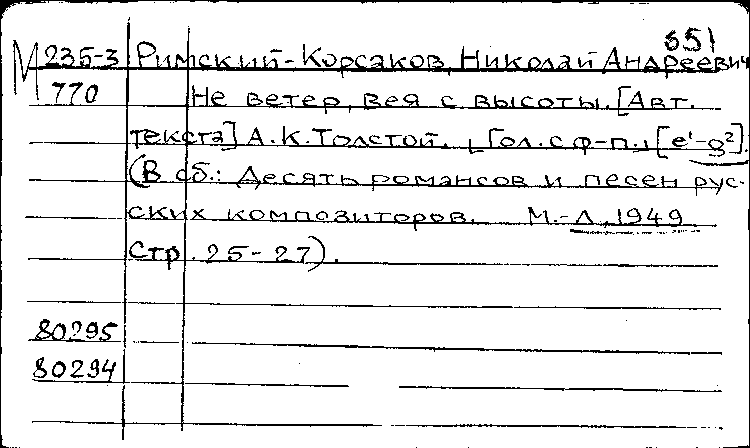 651
М 235-3 Римский-Корсаков, Николай Андреевич
770 Не ветер, вея с высоты. [Авт.
текста] А.К.Толстой. [Гол. с ф-п., [e¹-g²].
(В сб.: Десять романсов и песен рус-
ских композиторов. М.-Л., 1949
Стр. 25-27).
80295
80294